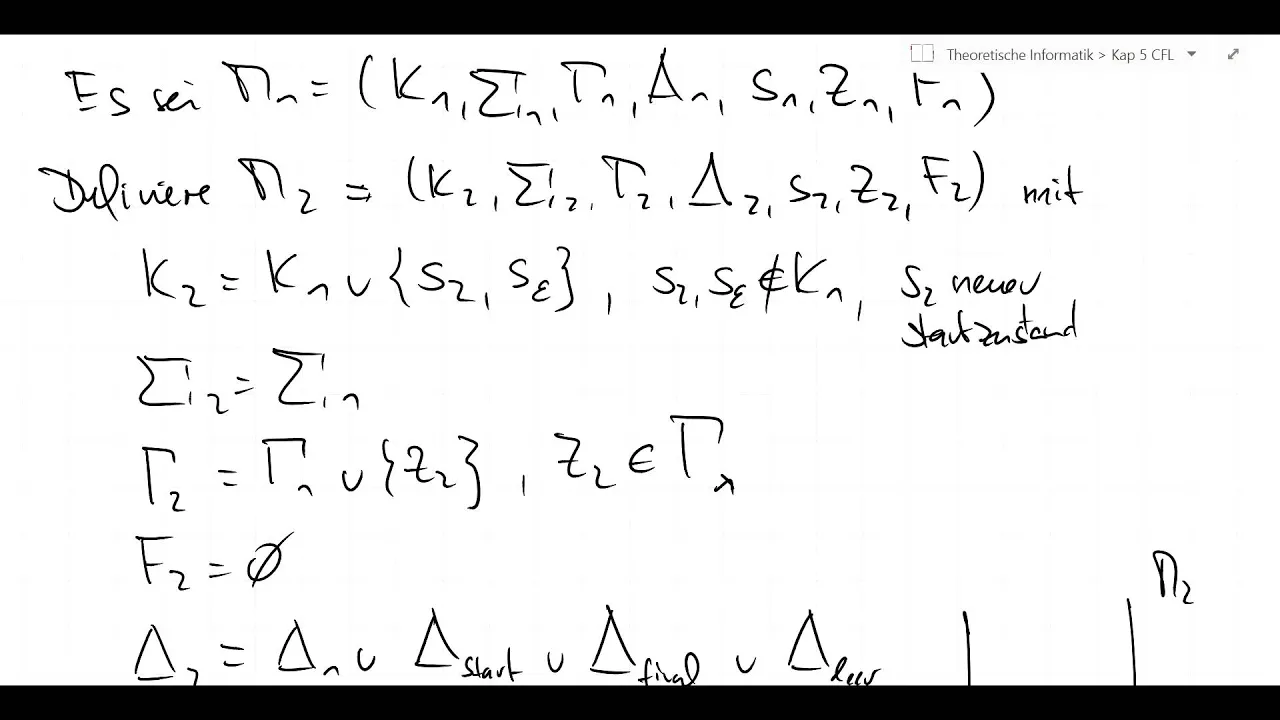 Theoretische Informatik > Kap 5 CFL
Es sei M₁ = (K₁, Σ₁, Γ₁, Δ₁, s₁, Z₁, F₁)
Definiere M₂ = (K₂, Σ₂, Γ₂, Δ₂, s₂, Z₂, F₂) mit
K₂ = K₁ ∪ {s₂, sε}, s₂, sε ∉ K₁, s₂ neuer
Startzustand
Σ₂ = Σ₁
Γ₂ = Γ₁ ∪ {Z₂}, Z₂ ∈ Γ₁
F₂ = ∅
M₂
Δ₂ = Δ₁ ∪ Δstart ∪ Δfinal ∪ Δleer